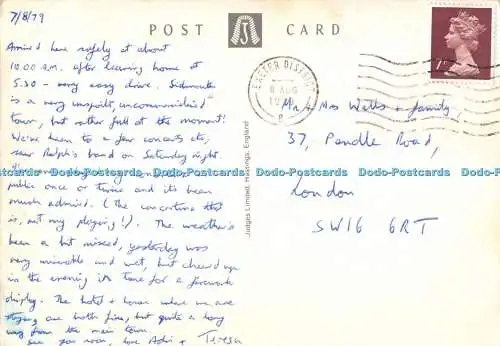 7/8/79
POST CARD
Arrived here safely at about
10.00 a.m. after leaving home at
5.30 - very easy drive. Sidmouth
is a very unspoilt, uncommercialised
town, but rather full at the moment!
We've been to a few concerts etc,
saw Ralph's band on Saturday night.
public once or twice and its been
much admired. (The concertina that
is, not my playing!). The weather's
been a bit mixed, yesterday was
very miserable and wet, but cheered up
in the evening in time for a firework
display. The hotel + house where we are
staying are both fine, but quite a long
way from the main town.
See you soon, love Adri + Teresa
Judges Limited, Hastings, England
EXETER DISTRICT
8 AUG
19
P
7P
Mr + Mrs Watts + family,
37, Pendle Road,
London
SW16 6RT
Dodo-Postcards Dodo-Postcards Dodo-Postcards Dodo-Postcards Dodo-Postcards